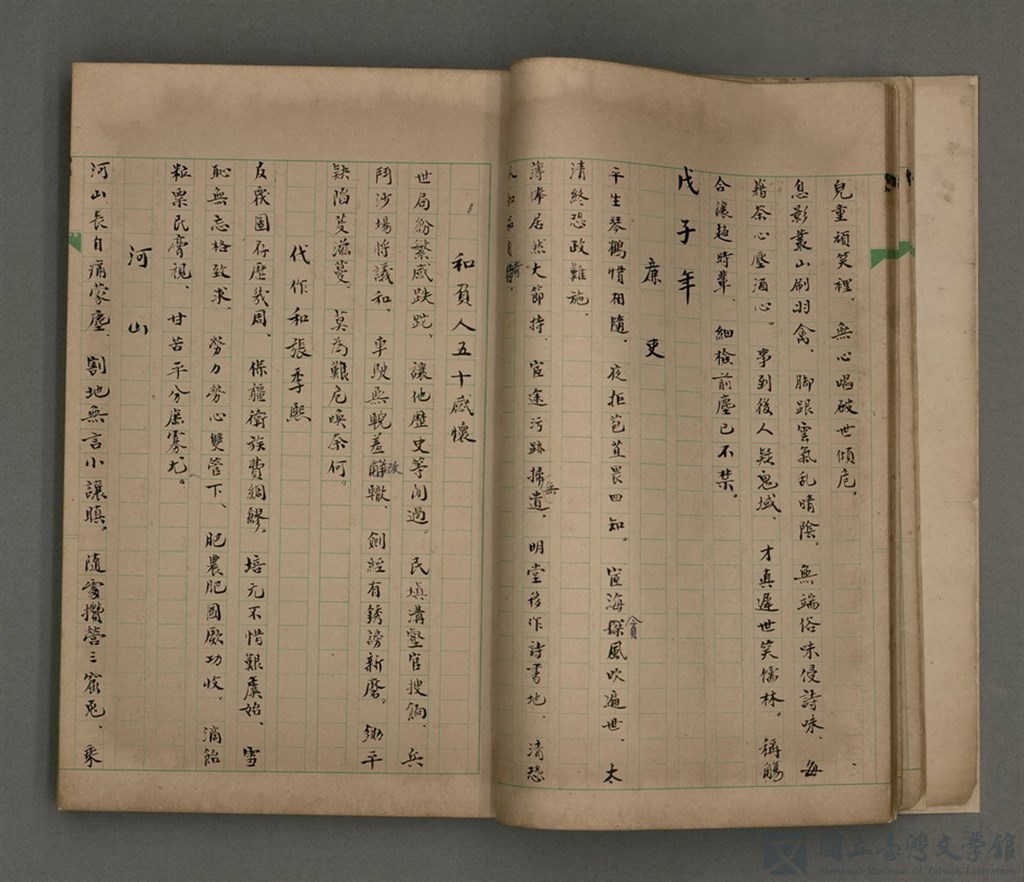 兒童頑笑裡、無心喝破世傾危。
息影叢山刷羽禽、脚跟雲氣乱晴陰、無端俗味侵詩味、每
藉茶心壓酒心。事到後人疑鬼域、才真遲世笑儒林。稱觴
合讓趨時輩、細檢前塵已不禁。
戊子年
廉吏
平生琴鶴惜相隨、夜拒苞苴畏四知。宦海貪風吹遍世、太
清終恐政難施。
薄俸居然大節持、宦途污跡掃無遺、明堂移作詩書地、清恐
人知
和頁人五十感懷
世局紛繁感跌跎、讓他歷史等闲過。民填溝壑官搜餉、兵
鬥沙場將議和、車駛無睨羞改轍、劍經有銹謗新磨。锄平
缺陷芟滋蔓、莫為艱危喚奈何。
代作和張季熙
反覆圖存歷幾周、保疆衛族費綢繆。培元不惜艱虞始、雪
恥無忘格致求、勞力勞心雙管下、肥農肥國厥功收。滴飴
粒粟民膏視、甘苦平分庶寡尤。
河山
河山長自痛蒙塵、割地無言小讓瞋、隨處攢營三窟兎、乘
國立臺灣文學館
National Museum of Taiwan Literature